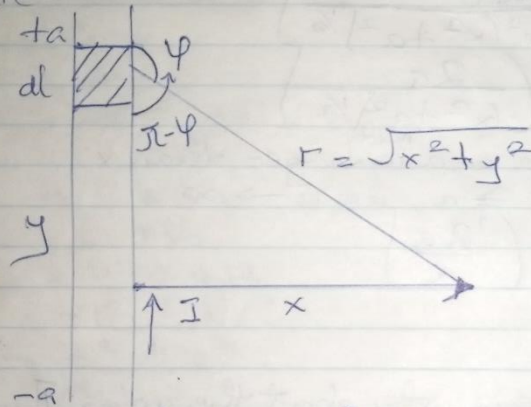 +a
φ
dl
π-φ
r = √x²+y²
y
↑ I
x
-a